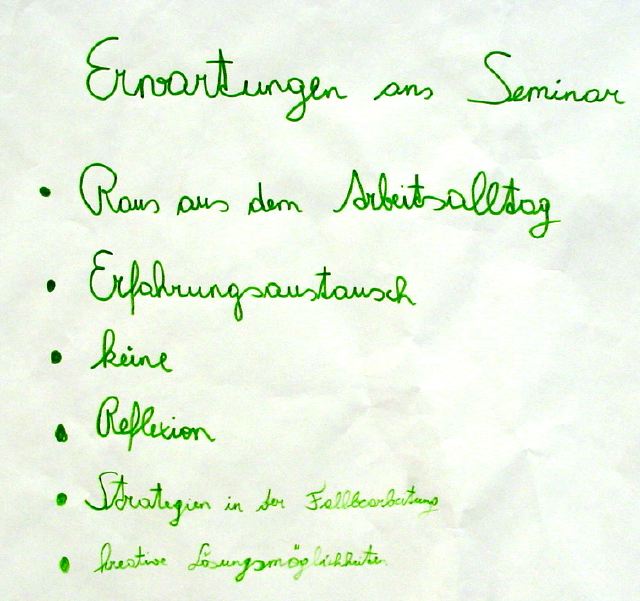 Erwartungen ans Seminar
• Raus aus dem Arbeitsalltag
• Erfahrungsaustausch
• keine
• Reflexion
• Strategien in der Fallbearbeitung
• kreative Lösungsmöglichkeiten